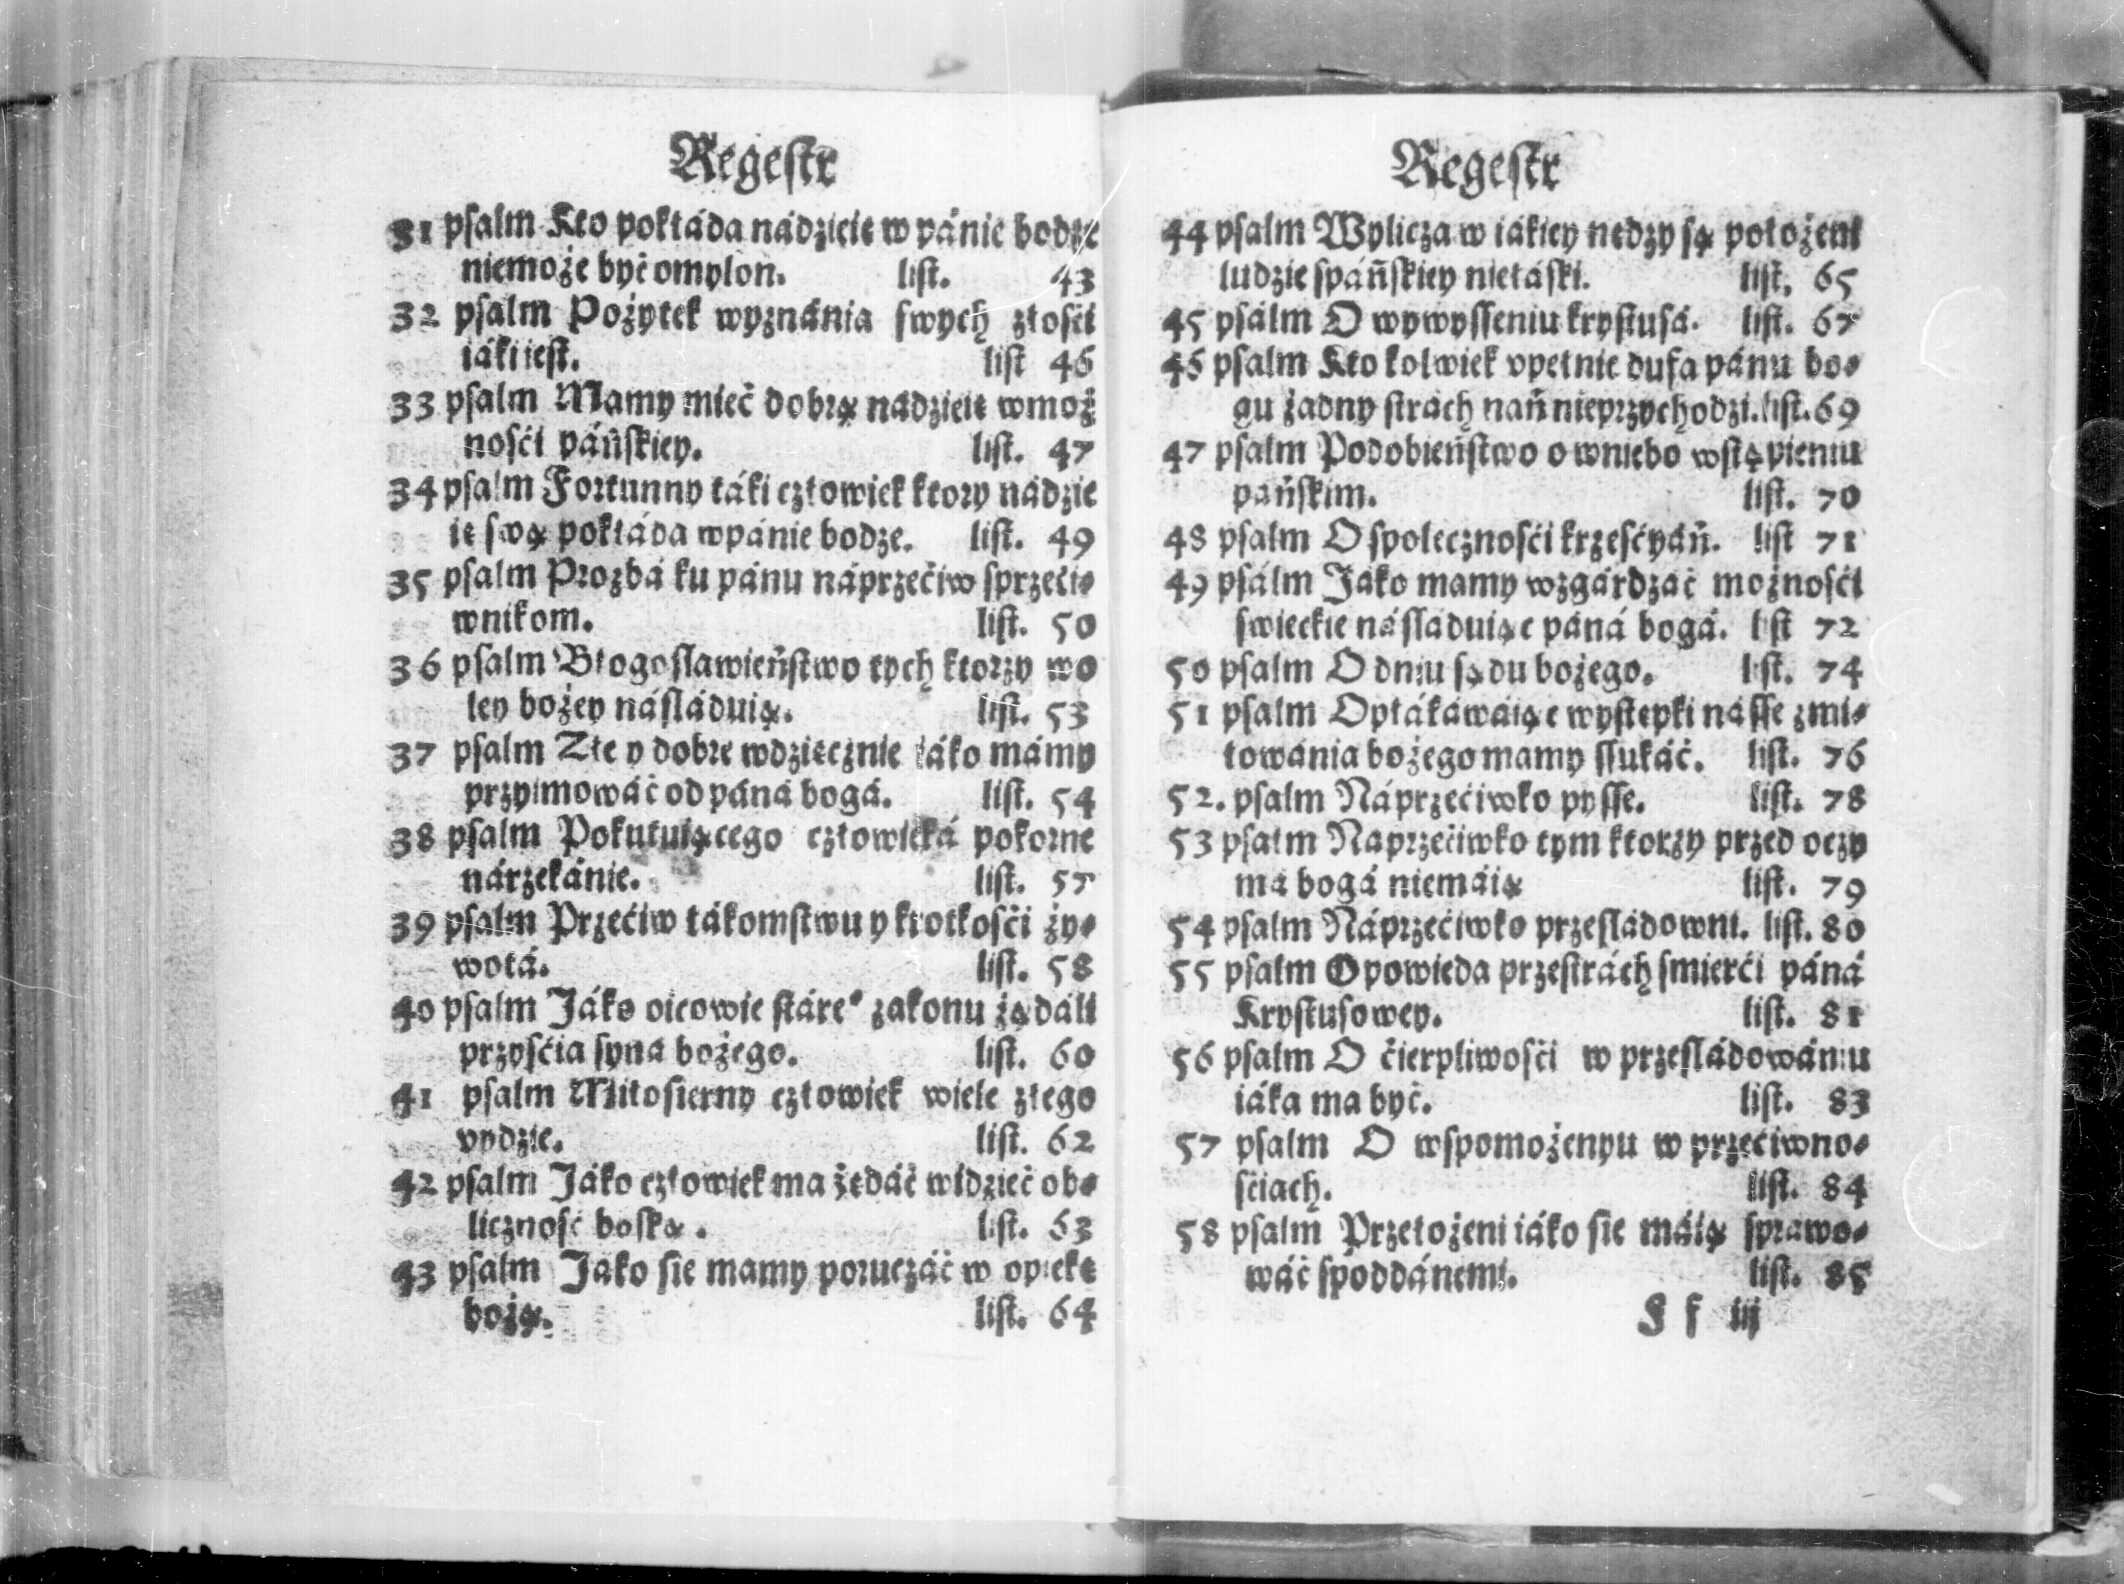 Regestr
31 psalm Kto pokłáda nádzieię w pánie bodze
niemoże być omylon. list. 43
32 psalm Pożytek wyznánia swych złośći
iáki iest. list 46
33 psalm Mamy mieć dobrą nádzieię wmoż
nośći páńskiey. list. 47
34 psalm Fortunny táki człowiek ktory nádzie
ię swą pokłáda wpánie bodze. list. 49
35 psalm Prozbá ku pánu náprzećiw sprzeći⸗
wnikom. list. 50
36 psalm Błogosławieństwo tych ktorzy wo
ley bożey násláduią. list. 53
37 psalm Złe y dobre wdzięcznie iáko mámy
przyimowáć od páná bogá. list. 54
38 psalm Pokutuiącego człowieká pokorne
nárzekánie. list. 57
39 psalm Przećiw łákomstwu y krotkośći ży⸗
wotá. list. 58
40 psalm Jáko oicowie stáre° zakonu żądáli
przyśćia syná bożego. list. 60
41 psalm Miłosierny człowiek wiele złego
vydzie. list. 62
42 psalm Jáko człowiek ma żędáć widzieć ob⸗
liczność boską. list. 63
43 psalm Jako sie mamy poruczáć w opiekę
bożą. list. 64
Regestr
44 psalm Wylicza w iákiey nędzy są położeni
ludzie spáńskiey niełáski. list. 65
45 psálm O wywysseniu krystusá. list. 67
45 psalm Kto kolwiek vpełnie dufa pánu bo⸗
gu żadny strách nań nieprzychodzi. list. 69
47 psalm Podobieństwo o wniebo wstąpieniu
páńskim. list. 70
48 psalm O spolecznośći krześćyáń. list 71
49 psálm Jáko mamy wzgárdzáć możnośći
swieckie násláduiąc páná bogá. list 72
50 psalm O dniu sądu bożego. list. 74
51 psalm Opłákáwáiąc występki násse zmi⸗
łowánia bożego mamy ssukáć. list. 76
52. psalm Náprzećiwko pysse. list. 78
53 psalm Naprzećiwko tym ktorzy przed oczy
má bogá niemáią list. 79
54 psalm Náprzećiwko przesládowni. list. 80
55 psalm Opowieda przestrách smierći páná
Krystusowey. list. 81
56 psalm O ćierpliwośći w przesládowániu
iáka ma być. list. 83
57 psalm O wspomożenyu w przećiwno⸗
śćiach. list. 84
58 psalm Przełożeni iáko sie máią spráwo⸗
wáć spoddánemi. list. 85
F f iij